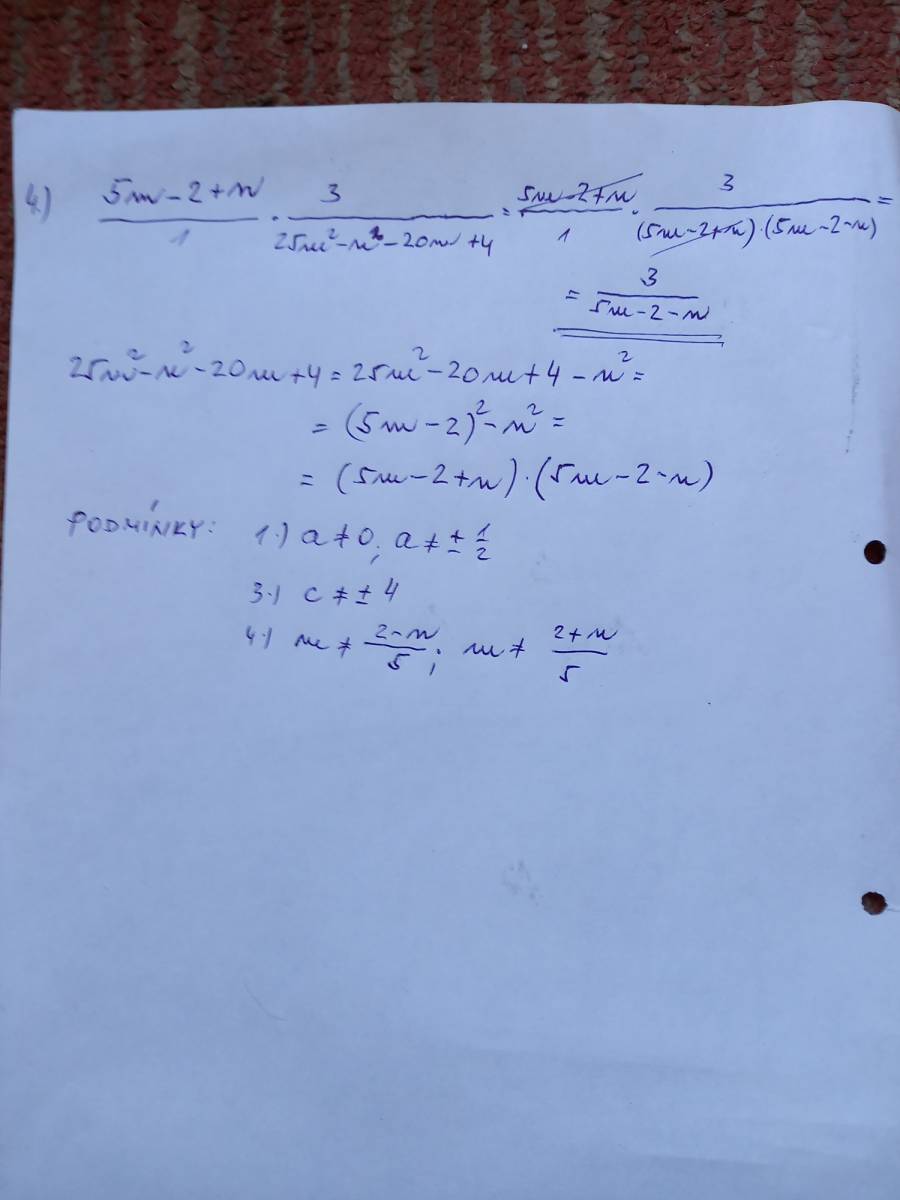 4.) (5m-2+n)/1 · 3/(25m²-n²-20m+4) = (5m-2+n)/1 · 3/((5m-2+n)·(5m-2-n)) =
= 3/(5m-2-n)
25m²-n²-20m+4 = 25m²-20m+4-n² =
= (5m-2)²-n² =
= (5m-2+n)·(5m-2-n)
PODMÍNKY: 1.) a≠0; a≠±1/2
3.) c≠±4
4.) m≠(2-n)/5; m≠(2+n)/5